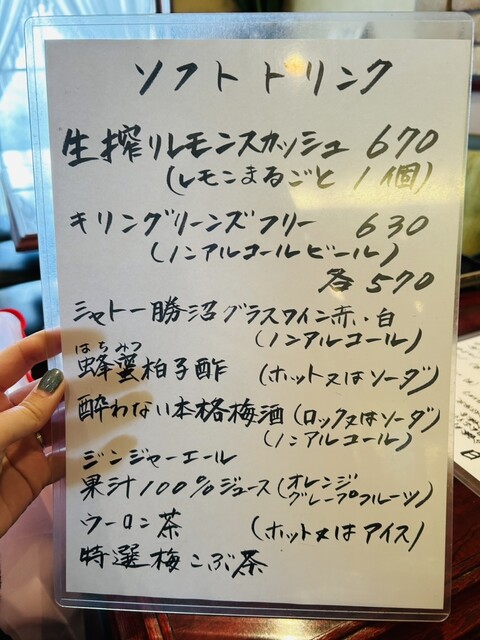 ソフトドリンク
生搾りレモンスカッシュ 670
(レモンまるごと1個)
キリングリーンズフリー 630
(ノンアルコールビール)
各570
シャトー勝沼グラスワイン赤・白
(ノンアルコール)
はちみつ
蜂蜜柏子酢 (ホット又はソーダ)
酔わない本格梅酒(ロック又はソーダ)
(ノンアルコール)
ジンジャーエール
果汁100%ジュース(オレンジ
グレープフルーツ)
ウーロン茶 (ホット又はアイス)
特選梅こぶ茶